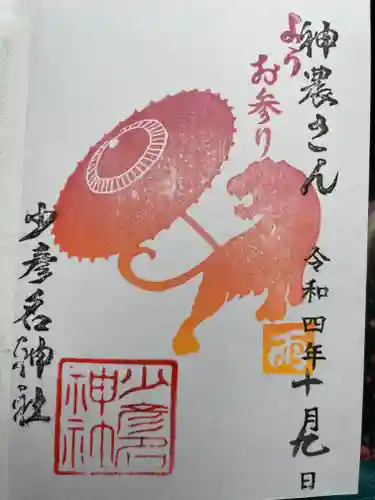 神農さん
ようお参り
令和四年十月九日
雨
少彦名神社
少彦名
神社